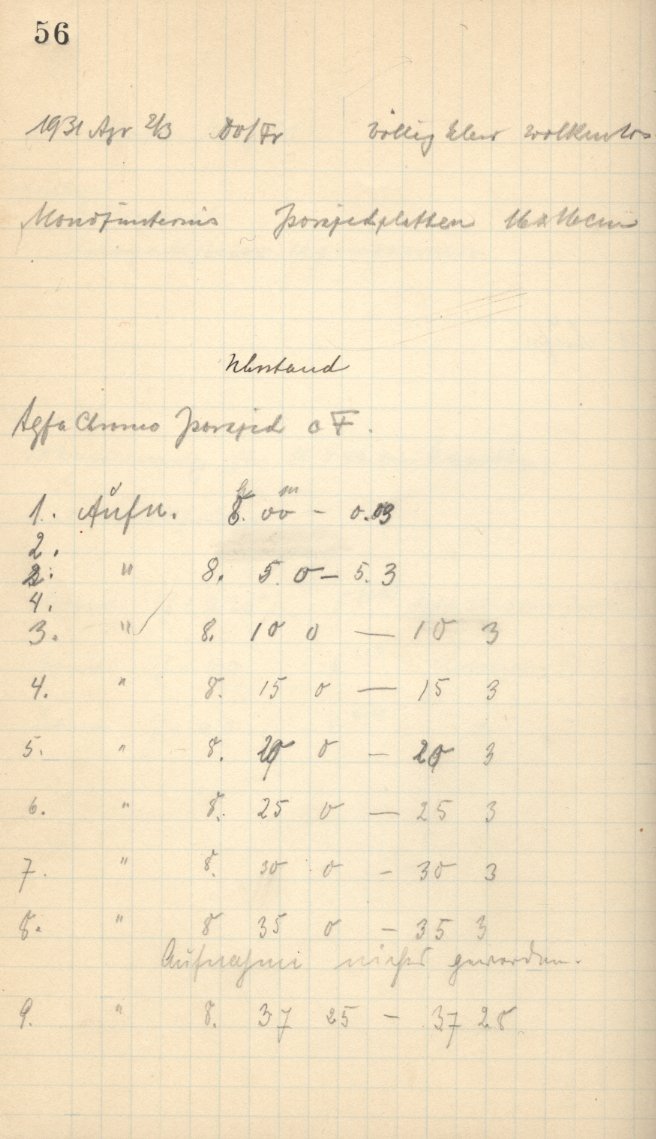 56
1931 Apr 2/3 Do/Fr völlig klar wolkenlos
Mondfinsternis platten 16x16cm
Agfa Chromo
1. Aufn. 8.h 00m - 0.03
2.
2. " 8. 5. 0 - 5. 3
4.
3. " 8. 10 0 — 10 3
4. " 8. 15 0 — 15 3
5. " 8. 20 0 - 20 3
6. " 8. 25 0 — 25 3
7. " 8. 30 0 - 30 3
8. " 8 35 0 - 35 3
Aufnahme nichts geworden.
9. " 8. 37 25 - 37 28